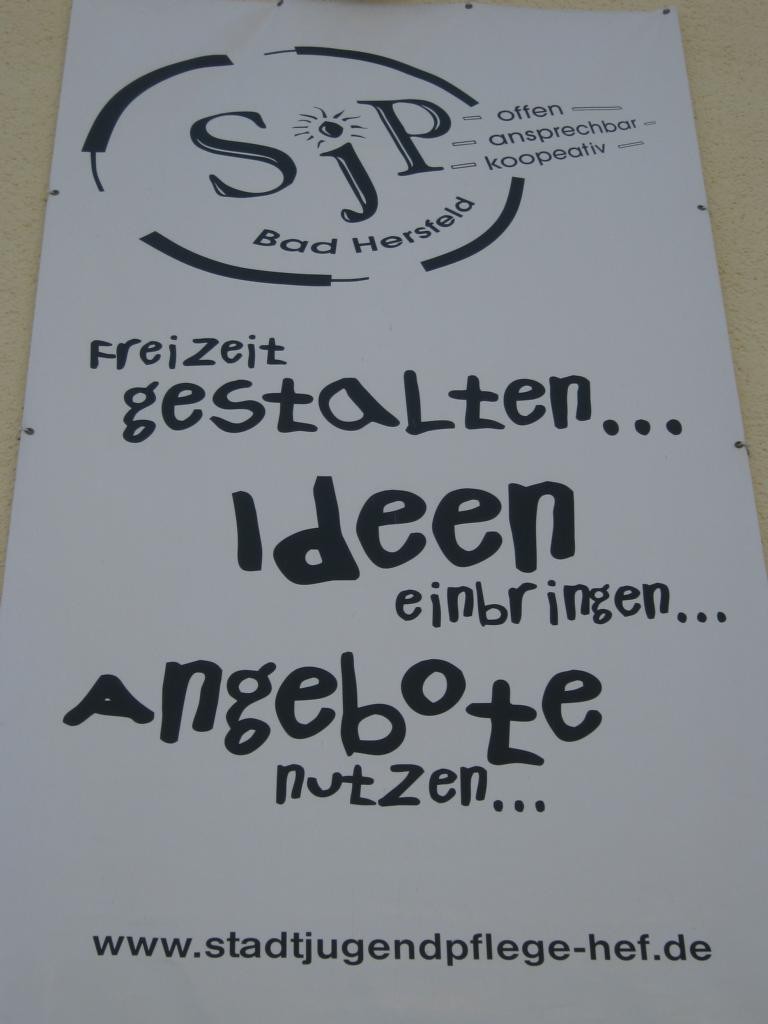 SjP
offen
ansprechbar
koopeativ
Bad Hersfeld
Freizeit
gestalten...
Ideen
einbringen...
Angebote
nutzen...
www.stadtjugendpflege-hef.de